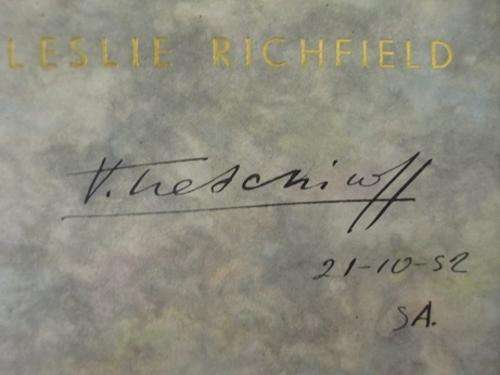 LESLIE RICHFIELD
V. Tretchikoff
21-10-52
SA.